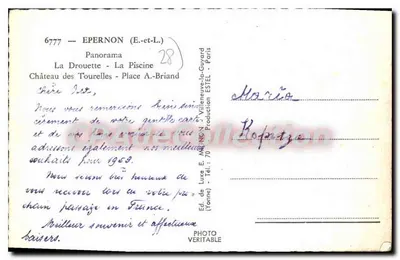 6777 — EPERNON (E.-et-L.)
Panorama
La Drouette - La Piscine
Château des Tourelles - Place A.-Briand
28
Nous vous remercions bien sin-
cèrement de votre gentille carte
et de vos vœux
adressons également nos meilleurs
souhaits pour 1963.
Nous serons très heureux de
vous recevoir lors de votre pro-
chain passage en France.
Meilleur souvenir et affectueux
baisers.
Ed. de Luxe E. MIGNON Villeneuve-la-Guyard
(Yonne) - Tél.: 70 Production ESTEL - Paris
PHOTO
VERITABLE
Мария